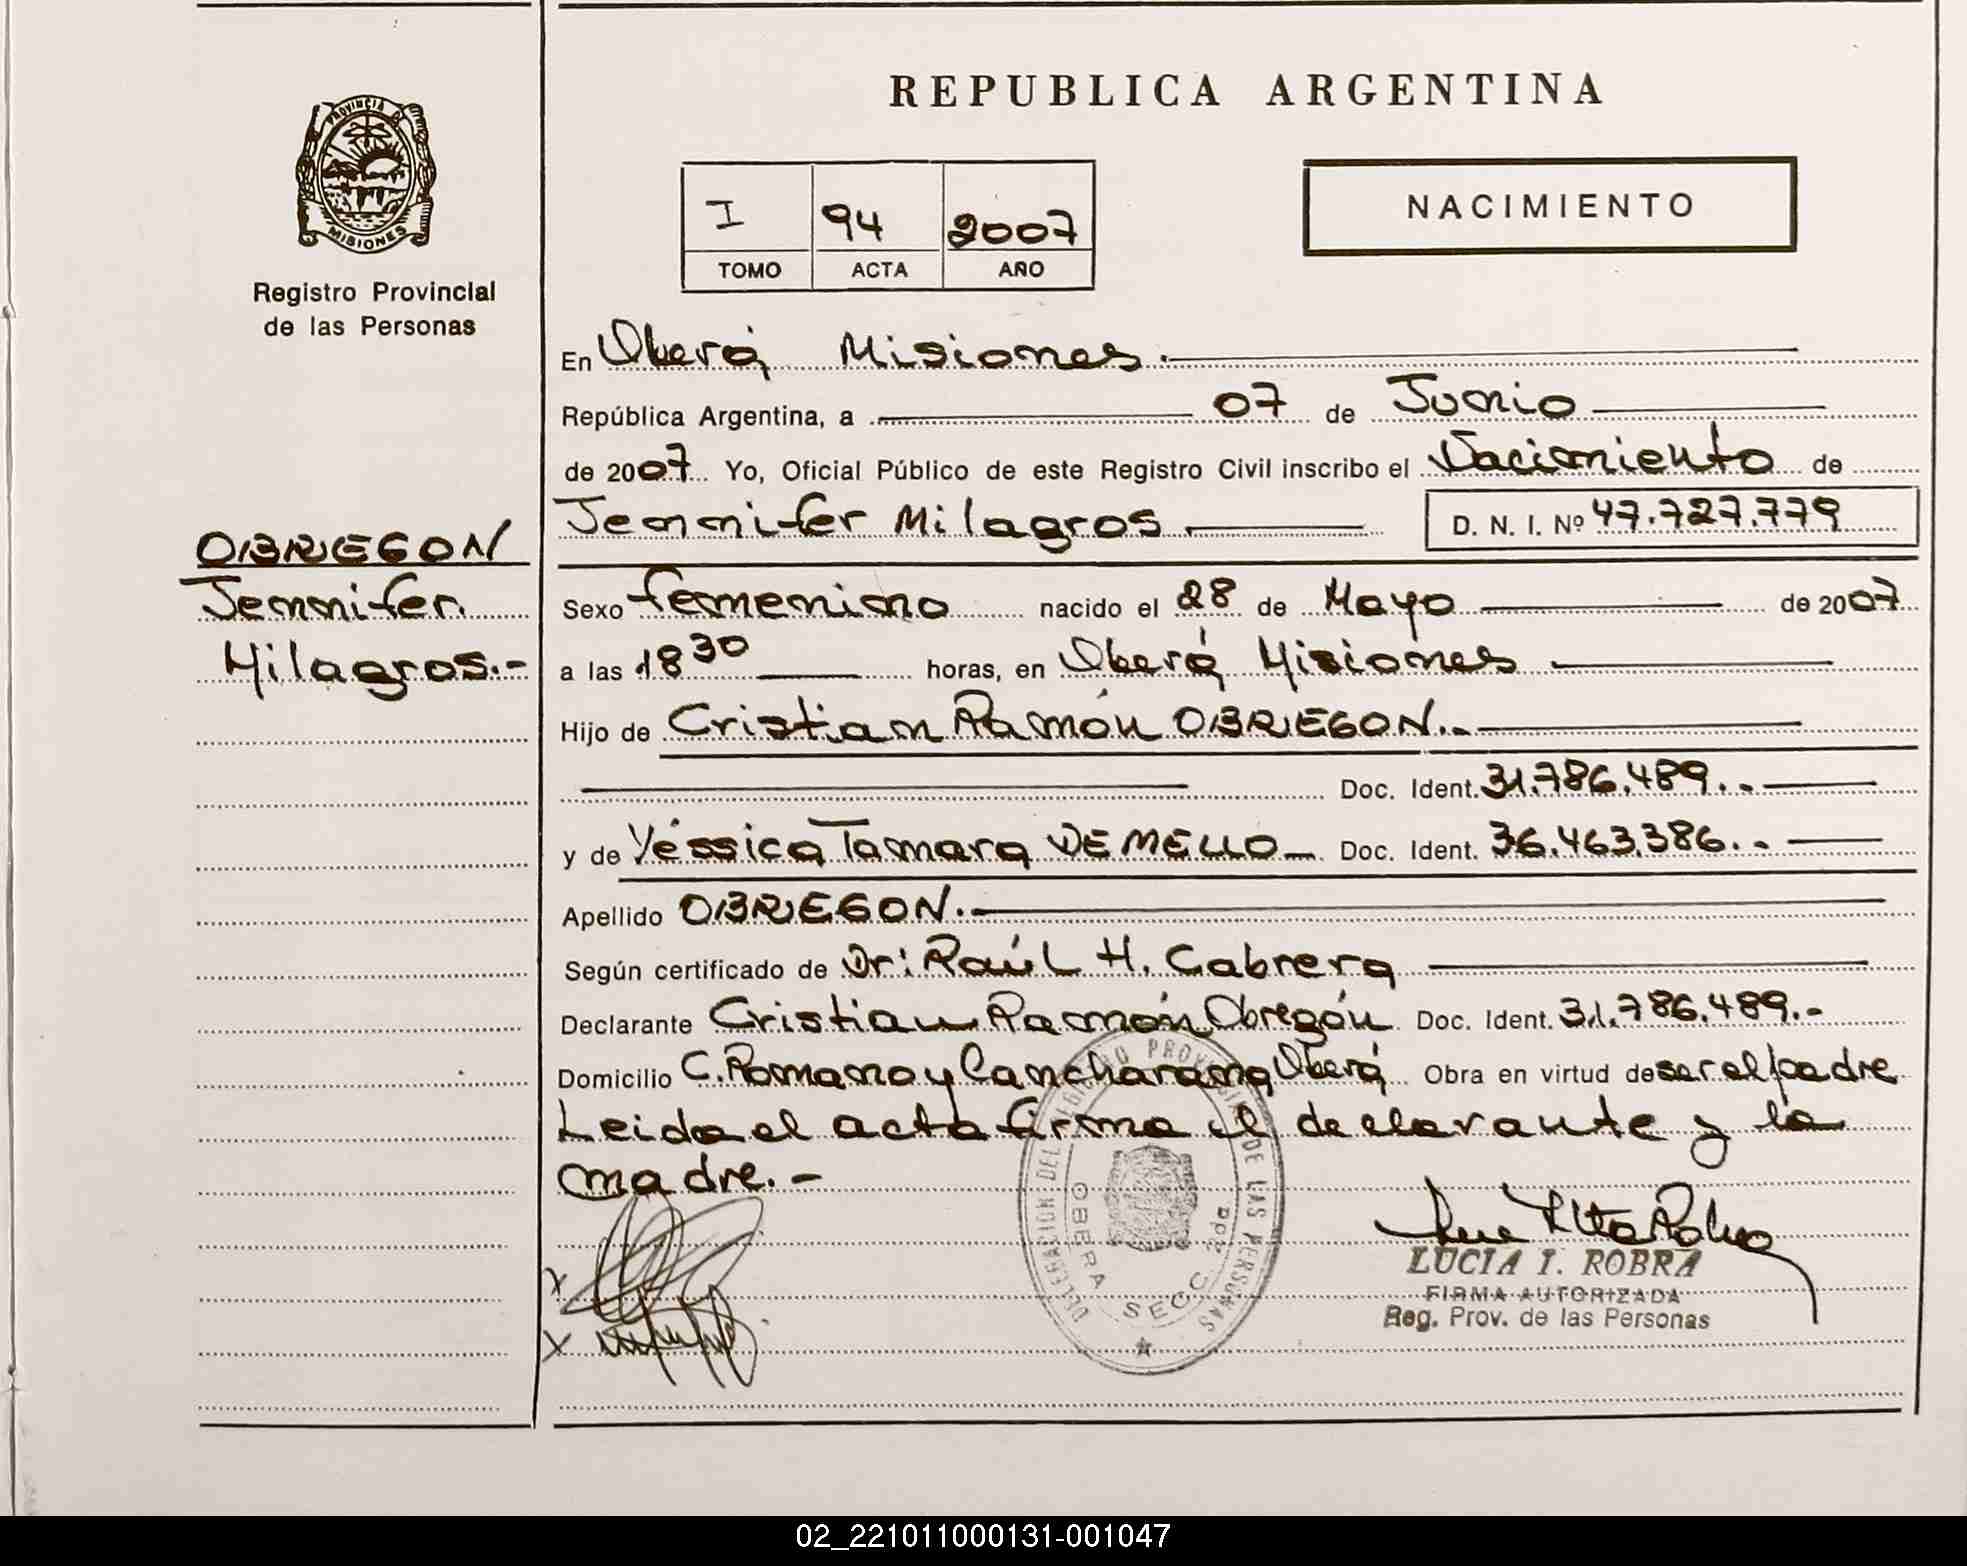 REPUBLICA ARGENTINA
PROVINCIA DE
MISIONES
Registro Provincial
de las Personas
I 94 2007
TOMO ACTA AÑO
NACIMIENTO
En Oberá Misiones.
República Argentina, a 07 de Junio
de 2007 Yo, Oficial Público de este Registro Civil inscribo el Nacimiento de
Jennifer Milagros. D. N. I. Nº 47.727.779
OBREGON
Jennifer.
Milagros.-
Sexo femenino nacido el 28 de Mayo de 2007
a las 18 30 horas, en Oberá Misiones
Hijo de Cristian Ramón OBREGON.-
Doc. Ident. 31.786.489.-
y de Yéssica Tamara DE MELLO Doc. Ident. 36.463.386.-
Apellido OBREGON.-
Según certificado de Dr: Raúl H. Cabrera
Declarante Cristian Ramón Obregón Doc. Ident. 31.786.489.-
Domicilio C. Romano y Cancharana Oberá Obra en virtud de ser el padre
Leida el acta firma el declarante y la
madre.-
DELEGACION DEL REGISTRO PROVINCIAL DE LAS PERSONAS
OBERA SECC. 2da.
LUCIA I. ROBRA
FIRMA AUTORIZADA
Reg. Prov. de las Personas
02_221011000131-001047